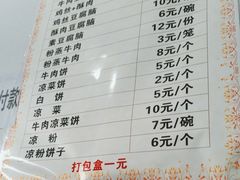 鸡丝+酥肉 10元/
鸡丝豆腐脑 6元/碗
酥肉豆腐脑 12元/份
素豆腐脑 3元/笼
粉蒸牛肉 8元/个
粉蒸牛肉 5元/个
牛肉饼 2元/个
凉菜饼 5元/个
白饼 10元/个
凉菜 7元/碗
牛肉凉菜饼 6元/个
凉粉
凉粉饼子
打包盒一元
付款